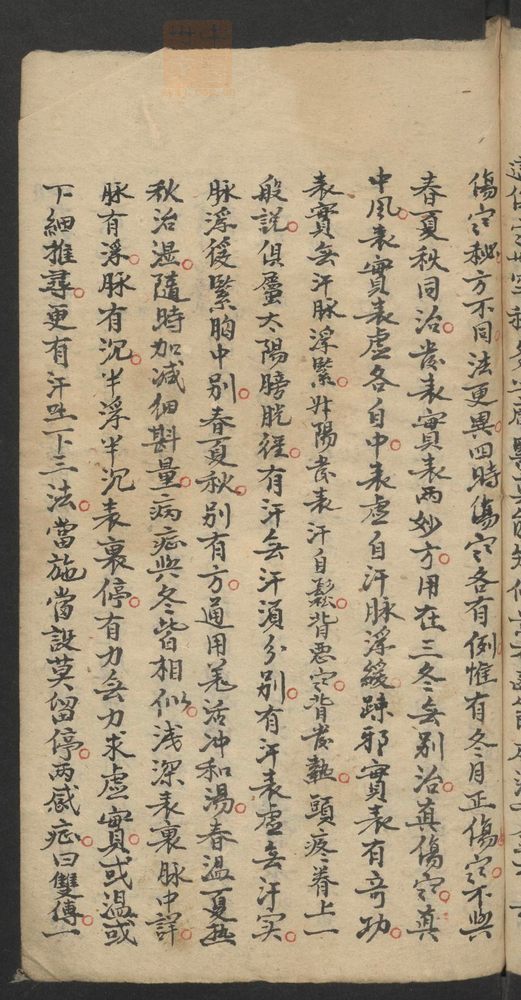 傷寒秘方不同法更異四時傷寒各有例惟有冬月正傷寒不與
春夏秋同治發表實表兩妙方用在三冬無别治真傷寒真
中風表實表虛各自中表虛自汗脉浮緩踈邪實表有奇功
表實無汗脉浮緊升陽發表汗自鬆皆悪寒皆發熱頭疼脊上一
般説俱屬太陽膀胱徑有汗無汗須分別有汗表虛無汗实
脉浮緩緊胸中别春夏秋别有方通用羗活冲和湯春温夏熱
秋治湿隨時加减细斟量病症與冬皆相似浅深表裏脉中詳
脉有浮脉有沉半浮半沉表裏停有力無力求虛實或温或
下細推尋更有汗吐下三法當施當設莫留停兩感症曰雙傳一